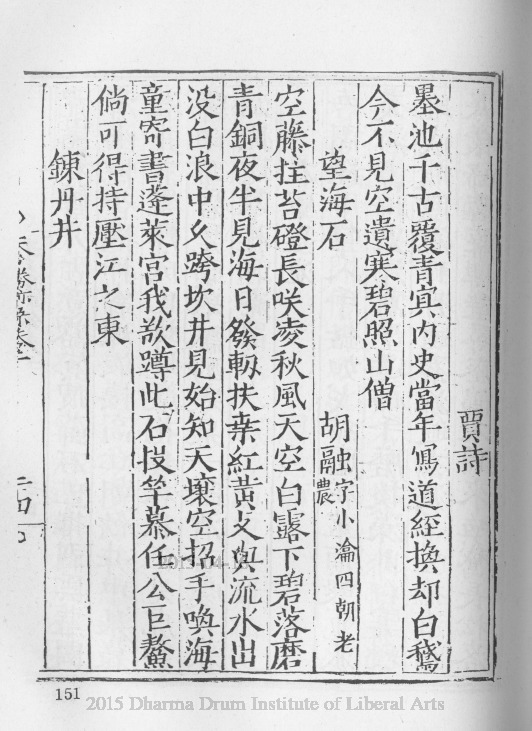 賈詩
墨池千古覆青㝠内史當年寫道經換却白鵞
今不見空遺寒碧照山僧
望海石 胡融字小瀹四朝老農
空藤拄苔磴長咲凌秋風天空白露下碧落磨
青銅夜半見海日發軔扶桒紅黃文與流水出
没白浪中久跨坎井見始知天壤空招手喚海
童寄書蓬萊宫我欲蹲此石投竿慕任公巨鰲
倘可得持壓江之東
鍊丹井
151
2015 Dharma Drum Institute of Liberal Arts